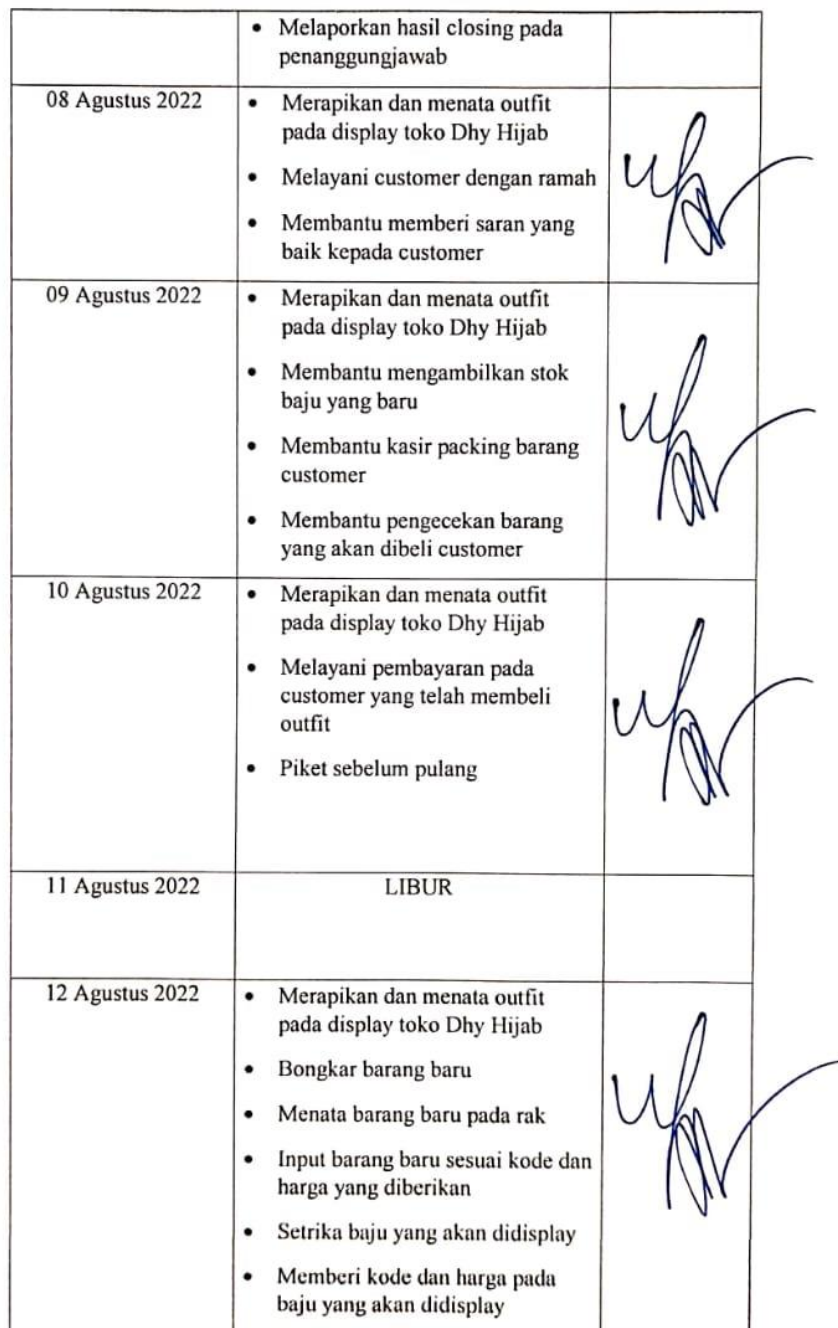 • Melaporkan hasil closing pada
penanggungjawab
08 Agustus 2022
• Merapikan dan menata outfit
pada display toko Dhy Hijab
• Melayani customer dengan ramah
• Membantu memberi saran yang
baik kepada customer
09 Agustus 2022
• Merapikan dan menata outfit
pada display toko Dhy Hijab
• Membantu mengambilkan stok
baju yang baru
• Membantu kasir packing barang
customer
• Membantu pengecekan barang
yang akan dibeli customer
10 Agustus 2022
• Merapikan dan menata outfit
pada display toko Dhy Hijab
• Melayani pembayaran pada
customer yang telah membeli
outfit
• Piket sebelum pulang
11 Agustus 2022
LIBUR
12 Agustus 2022
• Merapikan dan menata outfit
pada display toko Dhy Hijab
• Bongkar barang baru
• Menata barang baru pada rak
• Input barang baru sesuai kode dan
harga yang diberikan
• Setrika baju yang akan didisplay
• Memberi kode dan harga pada
baju yang akan didisplay